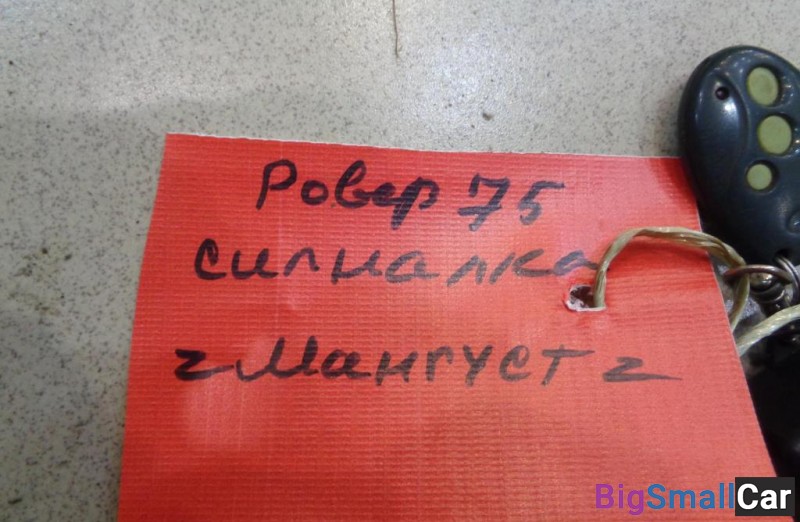 Ровер 75
сигналка
"Мангуст"
BigSmallCar